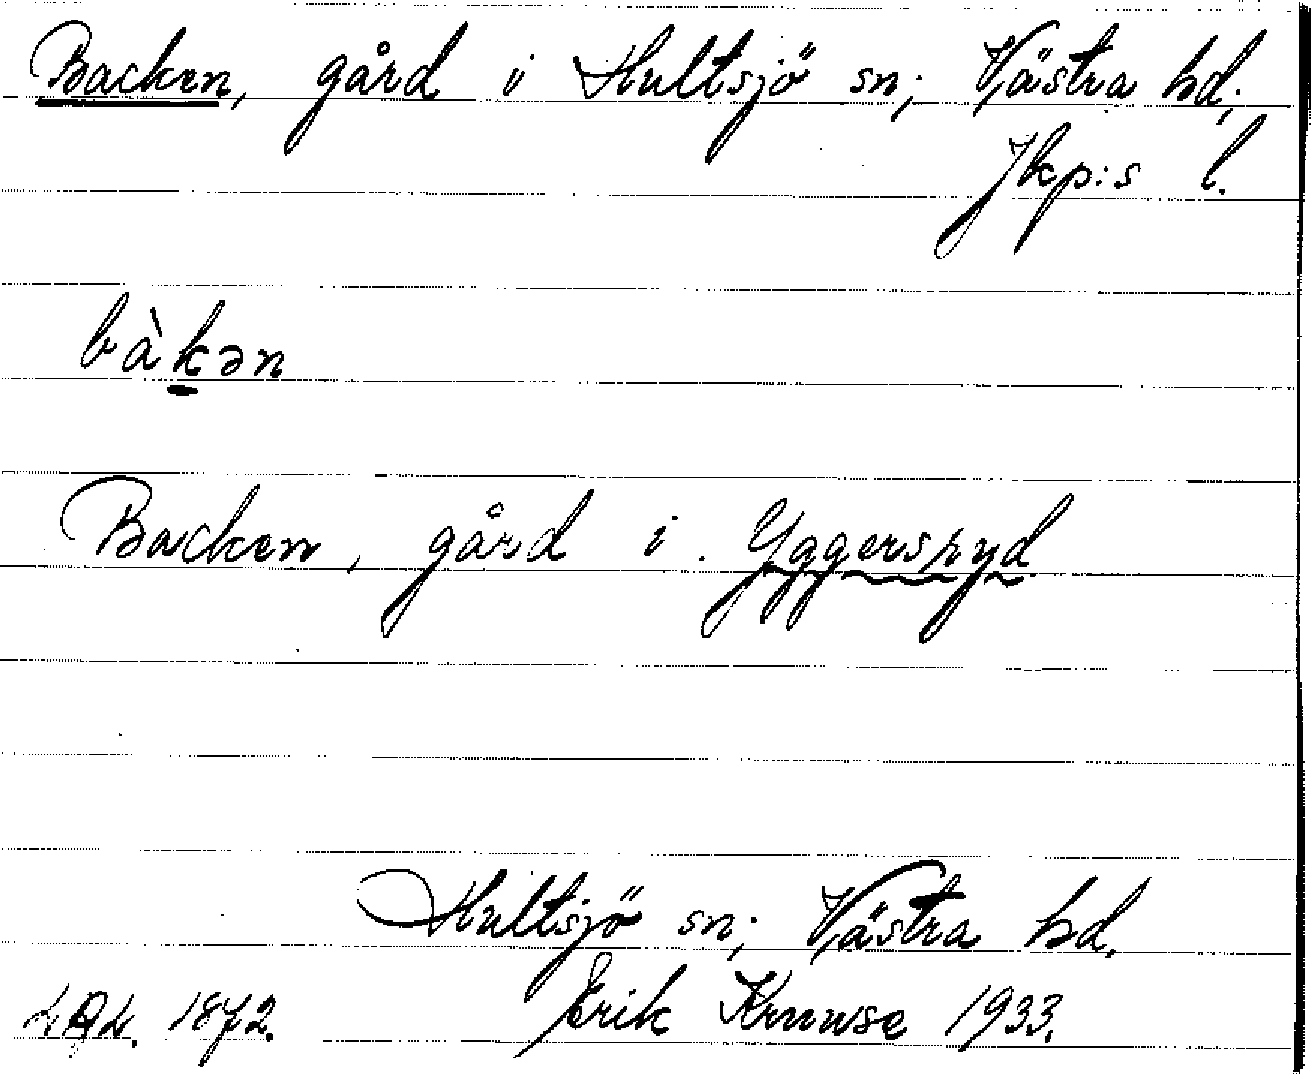 Backen, gård i Hultsjö sn; Västra hd;
Jkp:s l.
bàkən
Backen, gård i Yggersryd
Hultsjö sn; Västra hd,
Erik Kruuse 1933.
1872.